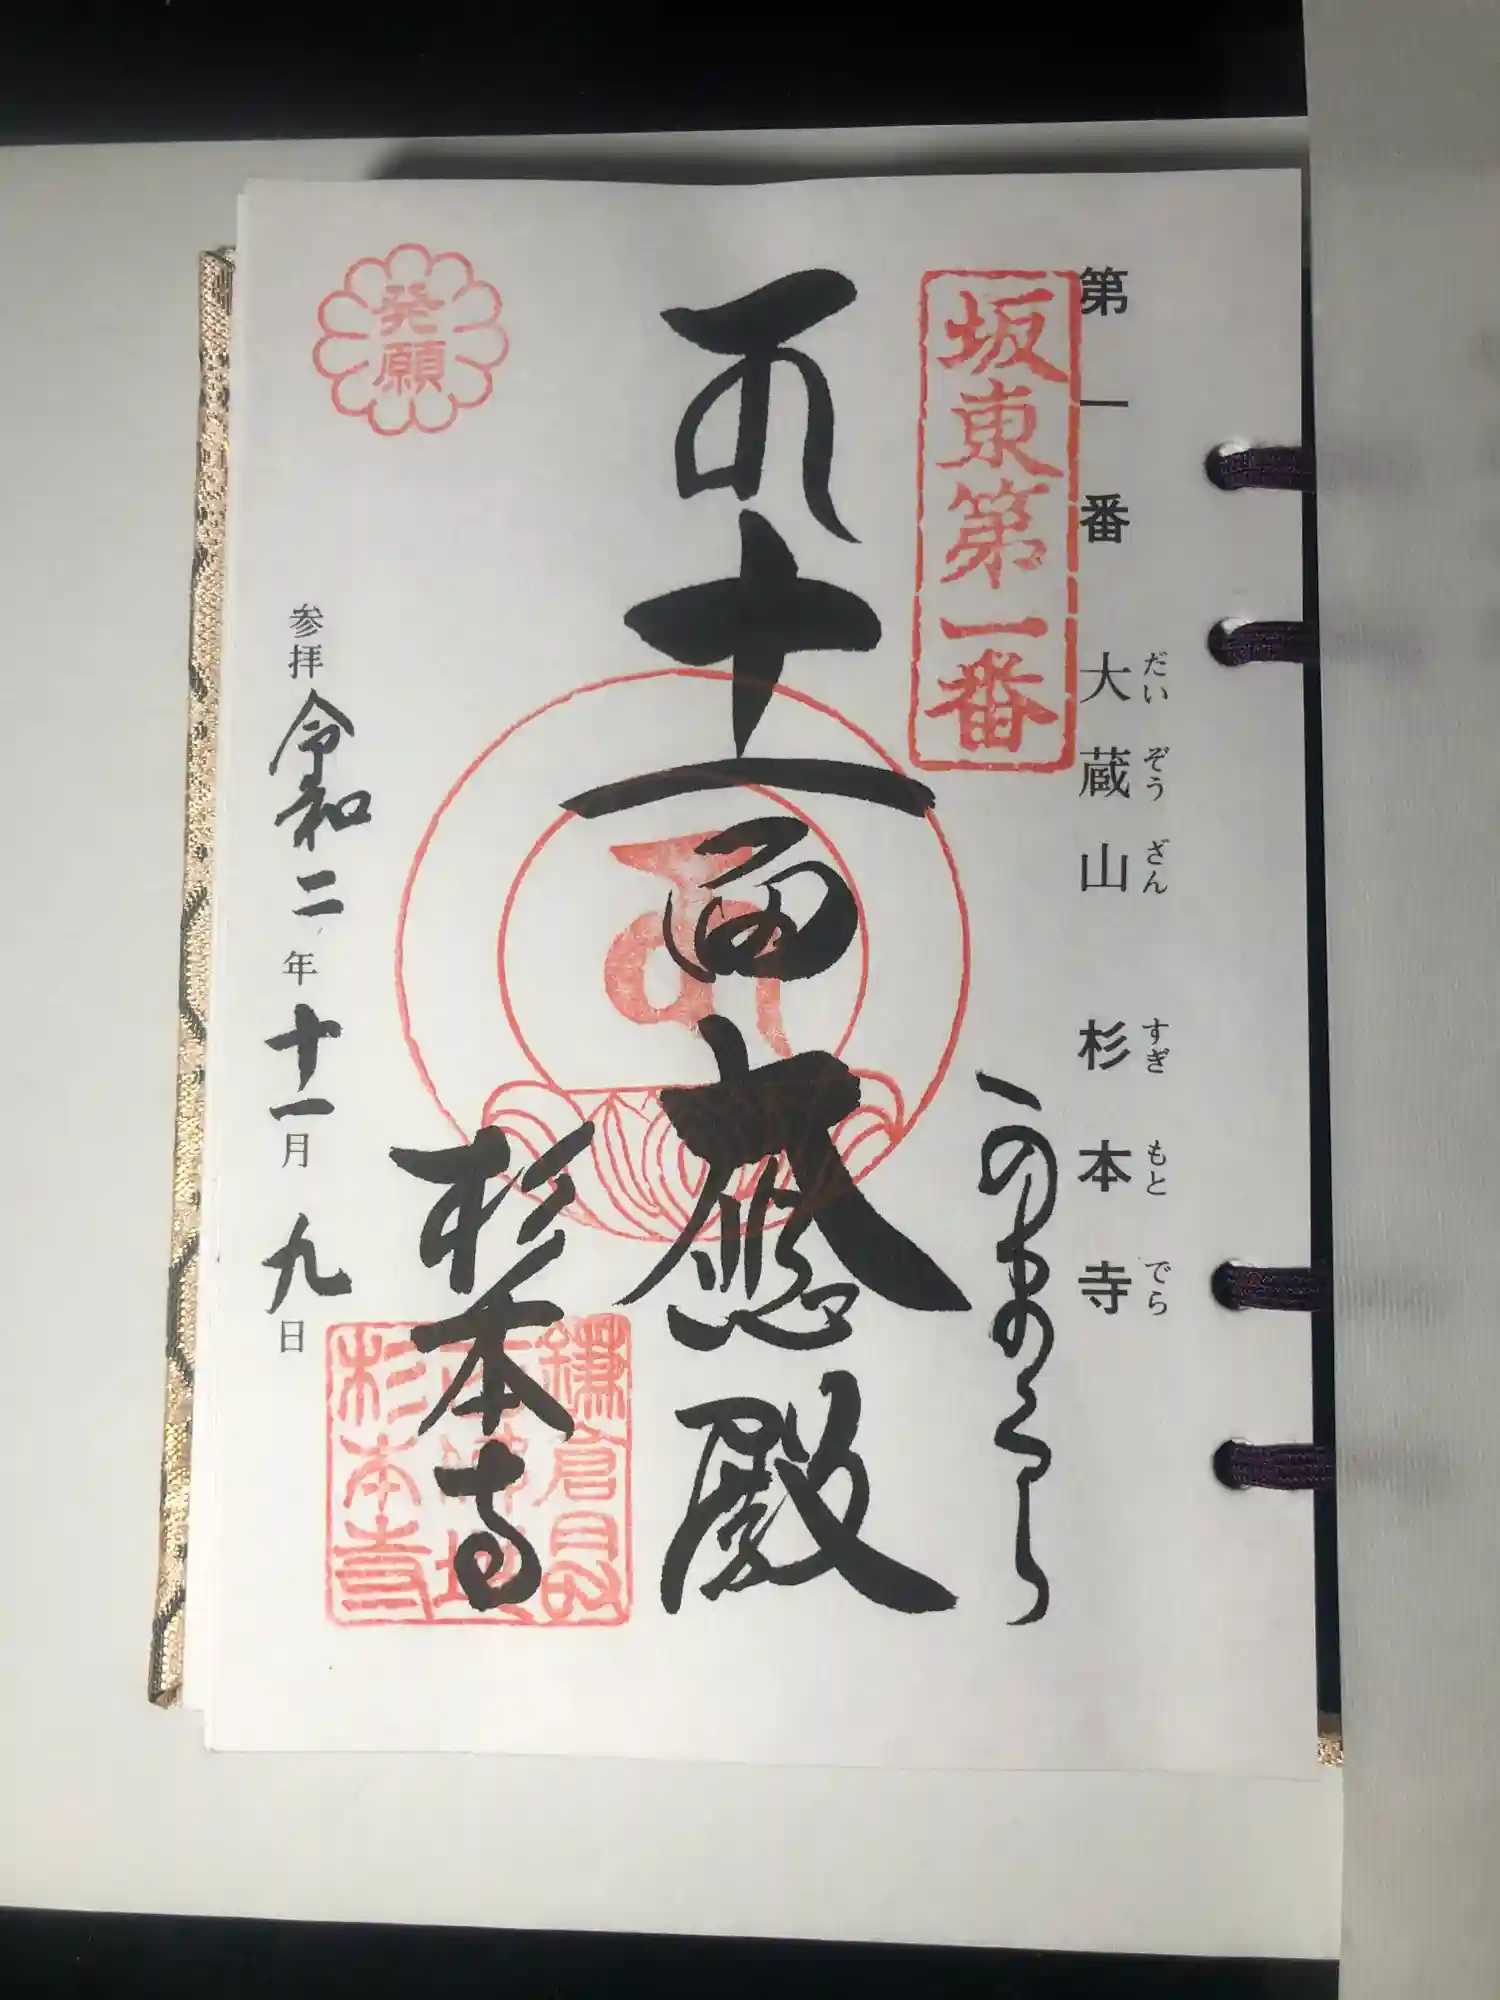 第一番 大蔵山 杉本寺
だいぞうざん すぎもとでら
坂東第一番
十一面大悲殿
杉本寺
発願
参拝 令和二年十一月九日
鎌倉
杉本寺